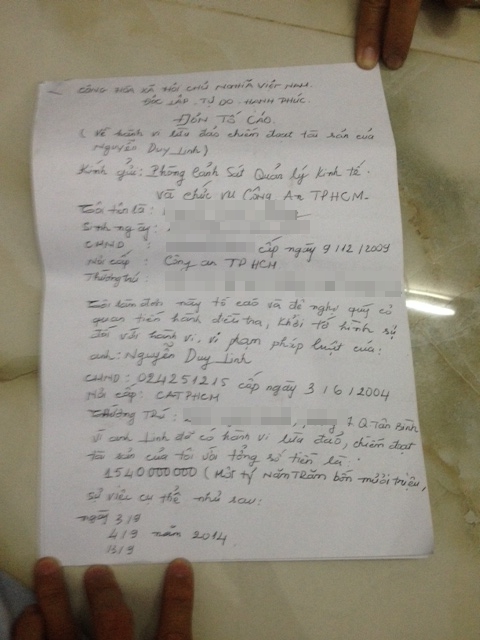 CỘNG HÒA XÃ HỘI CHỦ NGHĨA VIỆT NAM.
ĐỘC LẬP. TỰ DO. HẠNH PHÚC.
ĐƠN TỐ CÁO.
( Về hành vi lừa đảo chiếm đoạt tài sản của
Nguyễn Duy Linh )
Kính gửi: Phòng Cảnh Sát Quản lý Kinh tế.
và chức vụ Công An TPHCM.
Tôi tên là :
Sinh ngày :
CMND : cấp ngày 9/12/2009
Nơi cấp : Công an TPHCM
Thường trú :
Tôi làm đơn này tố cáo và đề nghị quý cơ
quan tiến hành điều tra, khởi tố hình sự
đối với hành vi, vi phạm pháp luật của:
anh: Nguyễn Duy Linh
CMND: 024251215 cấp ngày 3/6/2004
Nơi cấp: CATPHCM
Thường Trú : 7 Q Tân Bình
Vì anh Linh đã có hành vi lừa đảo, chiếm đoạt
tài sản của tôi với tổng số tiền là
1540000000 ( Một tỷ Năm Trăm bốn mươi triệu,
sự việc cụ thể như sau:
ngày 3/9
4/9 năm 2014
13/9